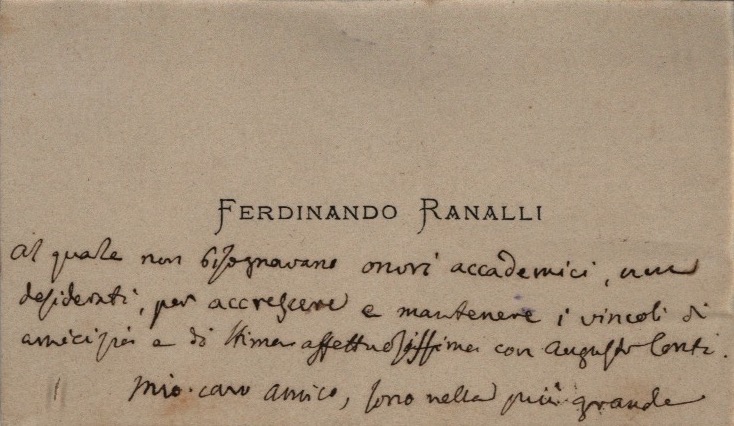 FERDINANDO RANALLI
Al quale non bisognavano onori accademici, non
desiderati, per accrescere e mantenere i vincoli di
amicizia e di stima affettuosissima con Augusto Conti.
Mio caro amico, sono nella più grande